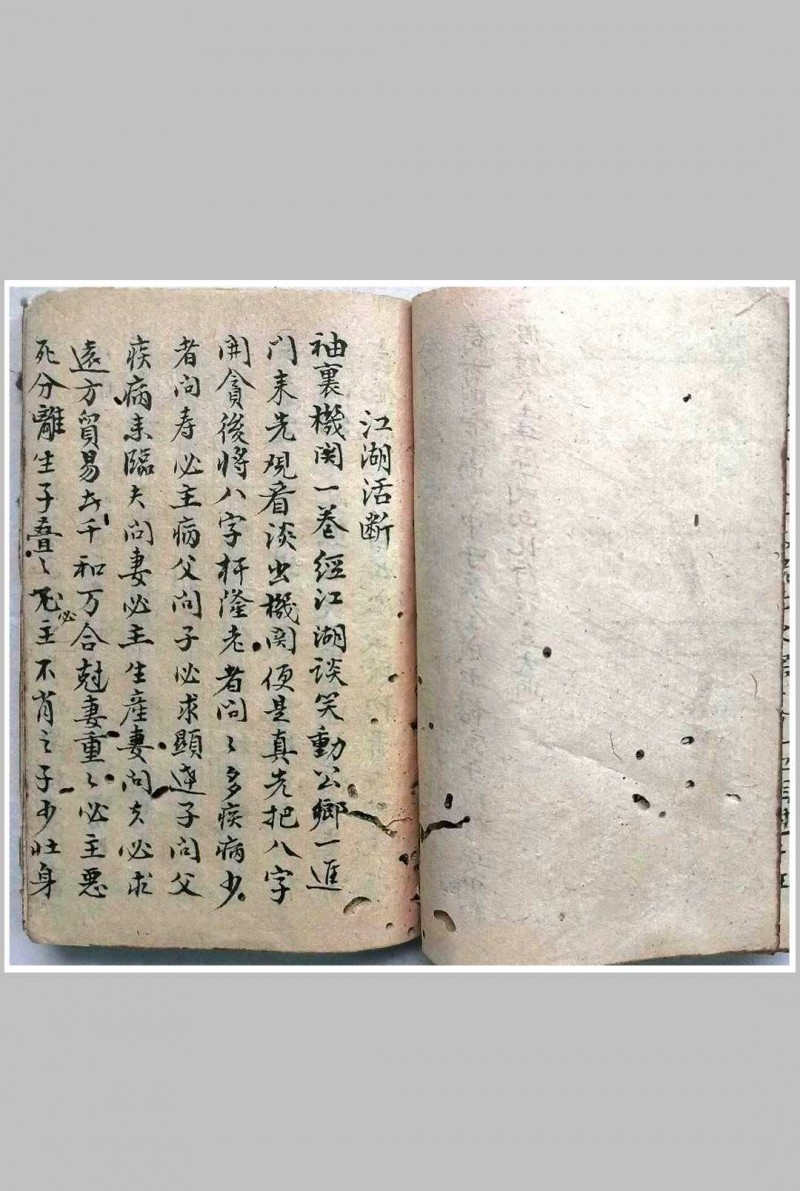 江湖活断
袖裏機関一卷經江湖談笑動公鄉一進
门来先观看談出機関便是真先把八字
開貪後将八字杆隆老者问〻多疾病少
者问寿必主病父问子必求顯達子问父
疾病来臨夫问妻必主生産妻问夫必求
遠方貿易千和万合尅妻重〻必主恶
死分離生子叠〻必主不肖之子少壮身